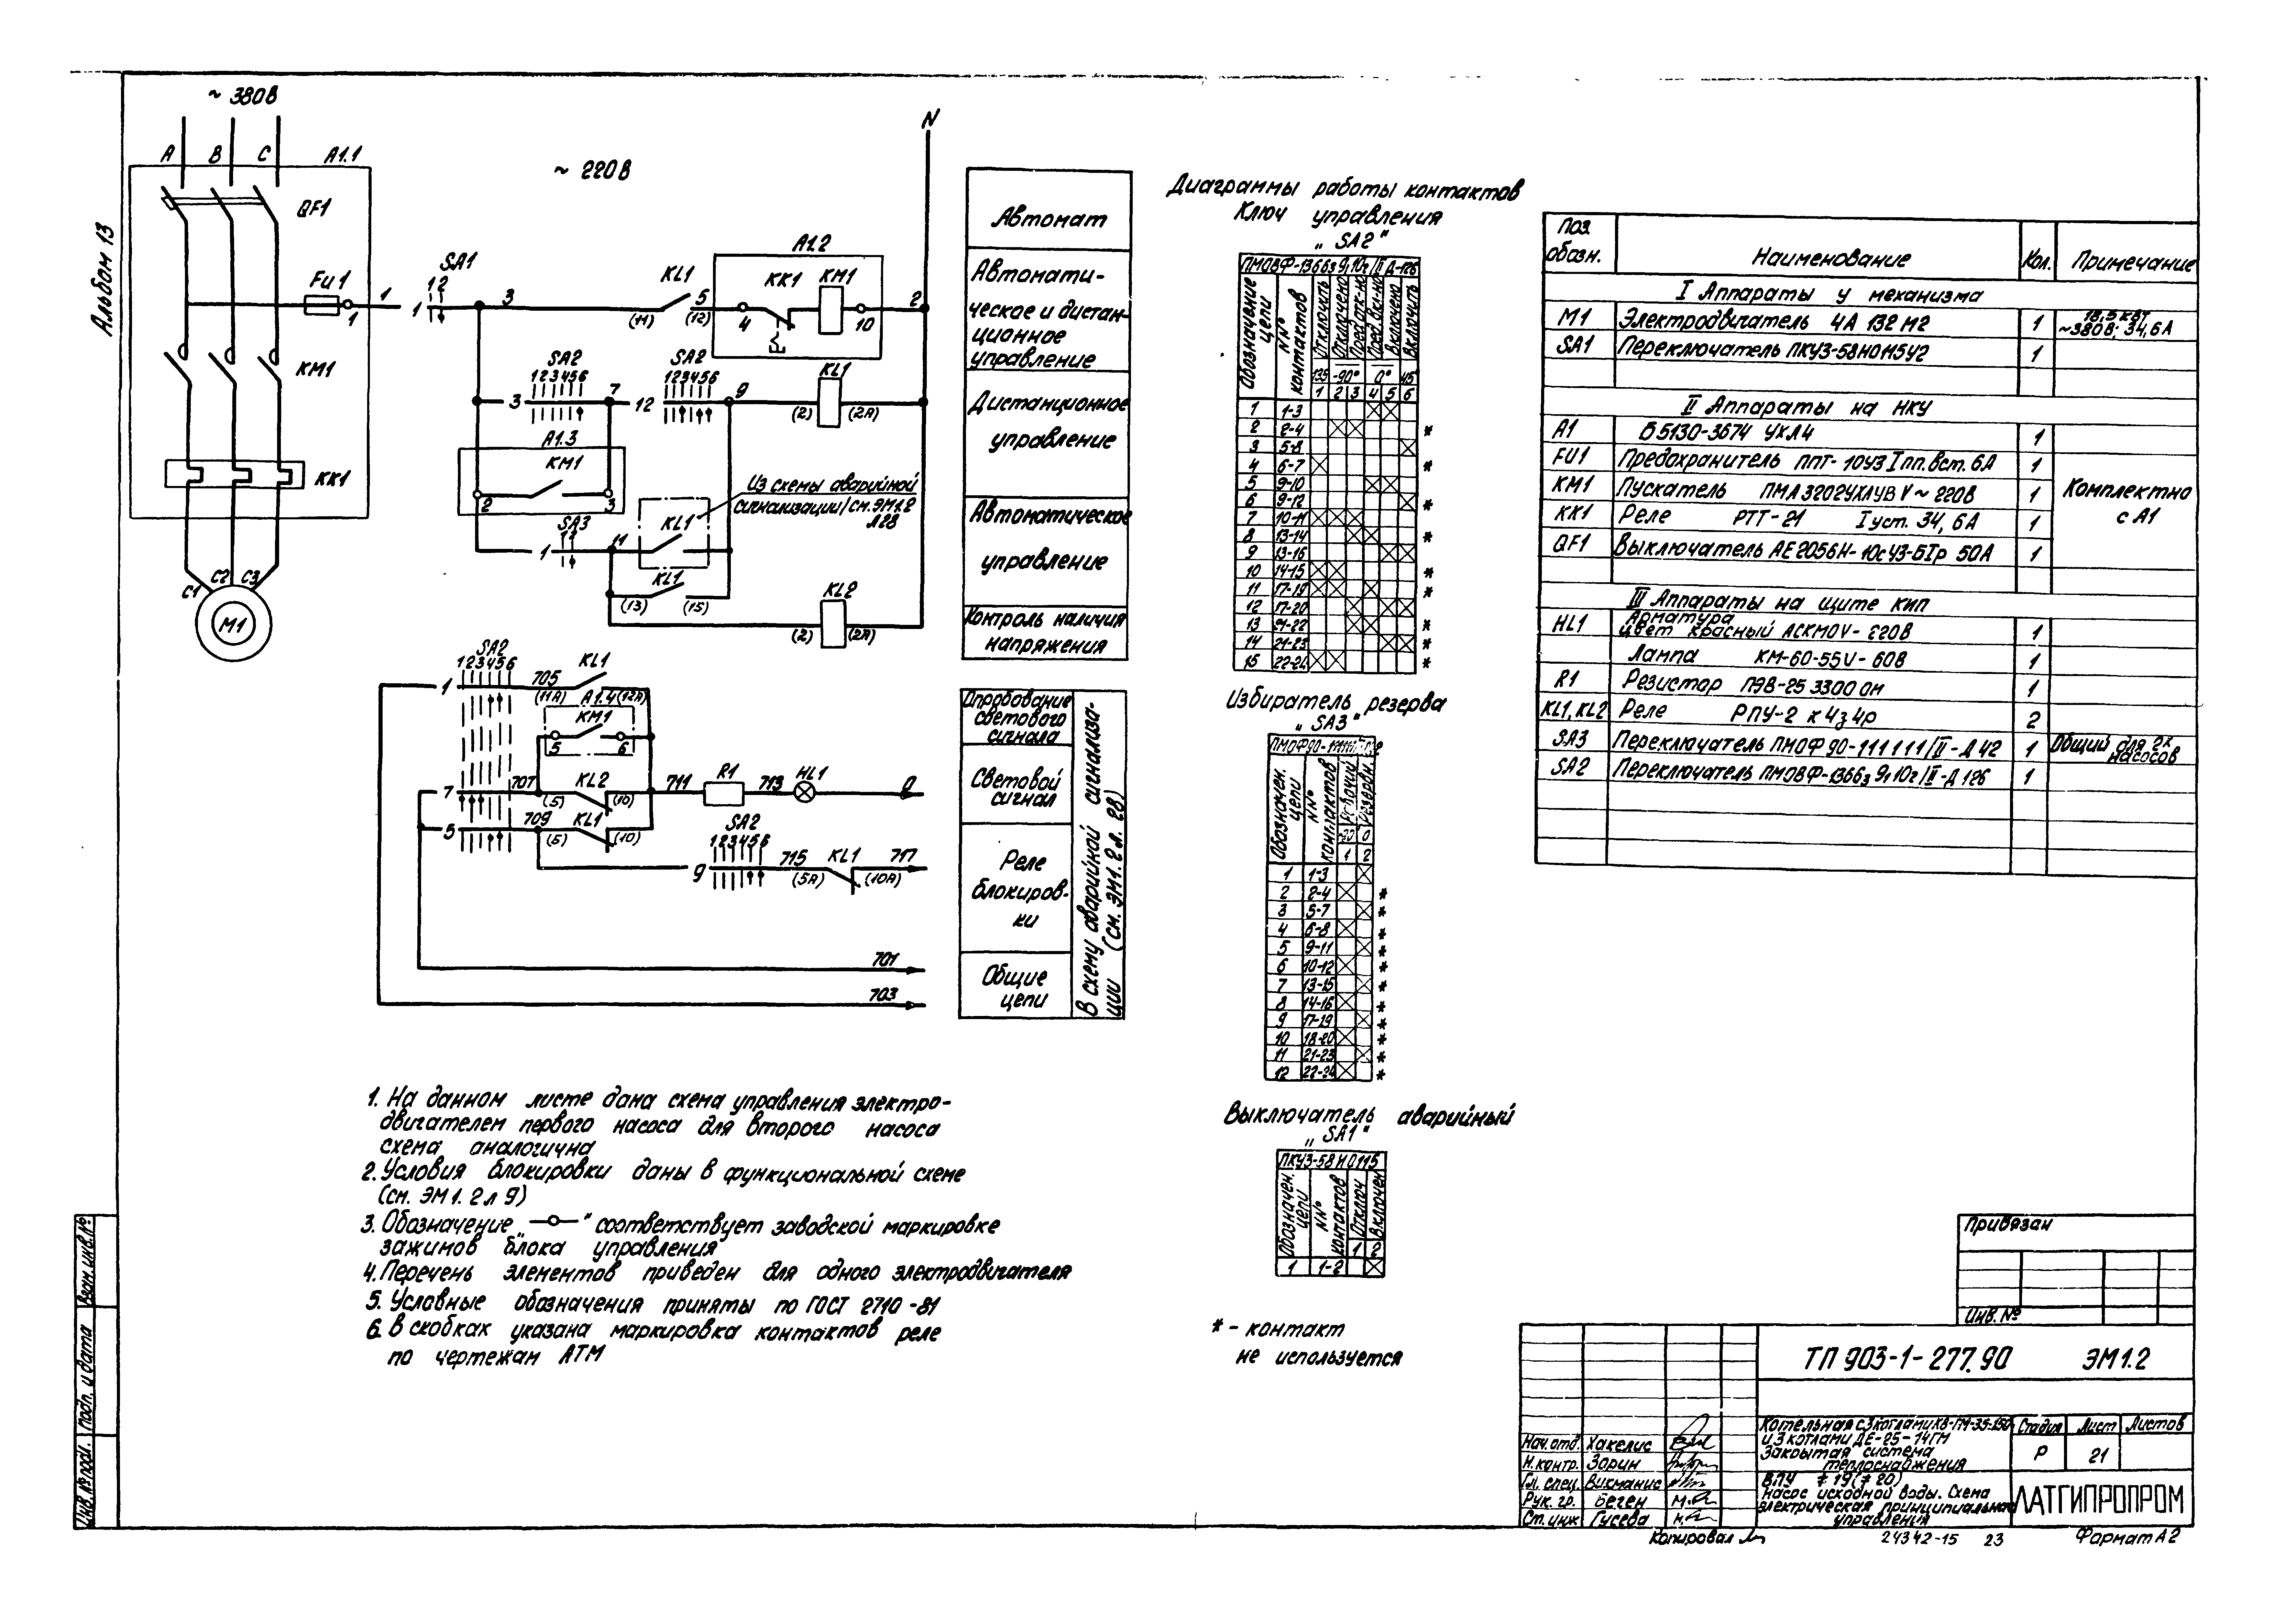 Альбом 13
~ 380В
A B C A1.1
QF1
FU1
1
1
KM1
KK1
C1 C2 C3
M1
~ 220В
N
SA1
1 2
1
3
KL1
(11) (12)
5
A1.2
KK1 KM1
4
10
2
SA2
1 2 3 4 5 6
3
7
SA2
1 2 3 4 5 6
12
9
KL1
(2) (2А)
A1.3
KM1
2 3
Из схемы аварийной
сигнализации/см. ЭМ1.2
Л28
SA3
1 2
1
11
KL1
KL1
(13) (15)
KL2
(2) (2А)
SA2
1 2 3 4 5 6
1
705
KL1
(11А) A1.4 (12А)
KM1
5 6
7
707
KL2
(5) (10)
711
R1
713
HL1
0
5
709
KL1
(5) (10)
SA2
1 2 3 4 5 6
9
715
KL1
717
(5А) (10А)
701
703
Автомат
Автомати-
ческое и дистан-
ционное
управление
Дистанционное
управление
Автоматическое
управление
Контроль наличия
напряжения
Опробование
светового
сигнала
Световой
сигнал
Реле
блокиров-
ки
Общие
цепи
В схему аварийной сигнализа-
ции (см. ЭМ1.2 л. 28)
1. На данном листе дана схема управления электро-
двигателем первого насоса для второго насоса
схема аналогична
2. Условия блокировки даны в функциональной схеме
(см. ЭМ1.2 л 9)
3. Обозначение „—о—" соответствует заводской маркировке
зажимов блока управления
4. Перечень элементов приведен для одного электродвигателя
5. Условные обозначения приняты по ГОСТ 2710-81
6. В скобках указана маркировка контактов реле
по чертежам АТМ
Диаграммы работы контактов
Ключ управления
„SA2"
ПМОВФ-1366з 9,10г/II Д-126
Обозначение цепи
N№ контактов
Отключить
Отключено
Пред. отк-но
Пред. вкл-но
Включено
Включить
135 -90° 0° 45°
1 2 3 4 5 6
1 1-3
2 2-4 *
3 5-8
4 6-7 *
5 9-10
6 9-12 *
7 10-11
8 13-14 *
9 13-16
10 14-15 *
11 17-19 *
12 17-20
13 21-22 *
14 21-23 *
15 22-24 *
Избиратель резерва
„SA3"
Обозначен. цепи
N№ контактов
Рабочий
Резервн.
90 0
1 2
1 1-3
2 2-4 *
3 5-7 *
4 6-8 *
5 9-11 *
6 10-12 *
7 13-15 *
8 14-16 *
9 17-19 *
10 18-20 *
11 21-23 *
12 22-24 *
Выключатель аварийный
„SA1"
ПКУ3-58И0115
Обозначен. цепи
N№ контактов
Отключ
Включен
1 2
1 1-2
* - контакт
не используется
Поз. обозн. Наименование Кол. Примечание
I Аппараты у механизма
M1 Электродвигатель 4А 132 М2 1 18,5 кВт ~380В; 34,6А
SA1 Переключатель ПКУ3-58И0115У2 1
II Аппараты на НКУ
A1 Б5130-3674 УХЛ4 1
FU1 Предохранитель ППТ-10У3 Iпл.вст. 6А 1
KM1 Пускатель ПМЛ32024ХЛ4В V~220В 1
KK1 Реле РТТ-21 Iуст. 34,6А 1
QF1 Выключатель АЕ2056Н-10сУ3-БIр 50А 1
Комплектно
с А1
III Аппараты на щите КИП
HL1 Арматура
цвет красный АСКМОV-220В 1
Лампа КМ-60-55V-60В 1
R1 Резистор ПЭВ-25 3300 Ом 1
KL1, KL2 Реле РПУ-2 к 4з 4р 2
SA3 Переключатель ПМОФ90-111111/II-Д42 1 Общий для 2х насосов
SA2 Переключатель ПМОВФ-1366з 9,10г/II-Д126 1
Привязан
Инв. №
ТП 903-1-277.90 ЭМ1.2
Котельная с 3 котлами КВ-ГМ-35-150
и 3 котлами ДЕ-25-14ГМ
Закрытая система
теплоснабжения
Стадия Лист Листов
Р 21
ВПУ ≠ 19(≠ 20)
Насос исходной воды. Схема
электрическая принципиальная
управления
ЛАТГИПРОПРОМ
Нач. отд. Хакелис
Н. контр. Зорин
Гл. спец. Викманис
Рук. гр. Беген
Ст. инж Гусева
Копировал
24342-15 23
Формат А2
Взам. инв. №
Подп. и дата
Инв. № подл.